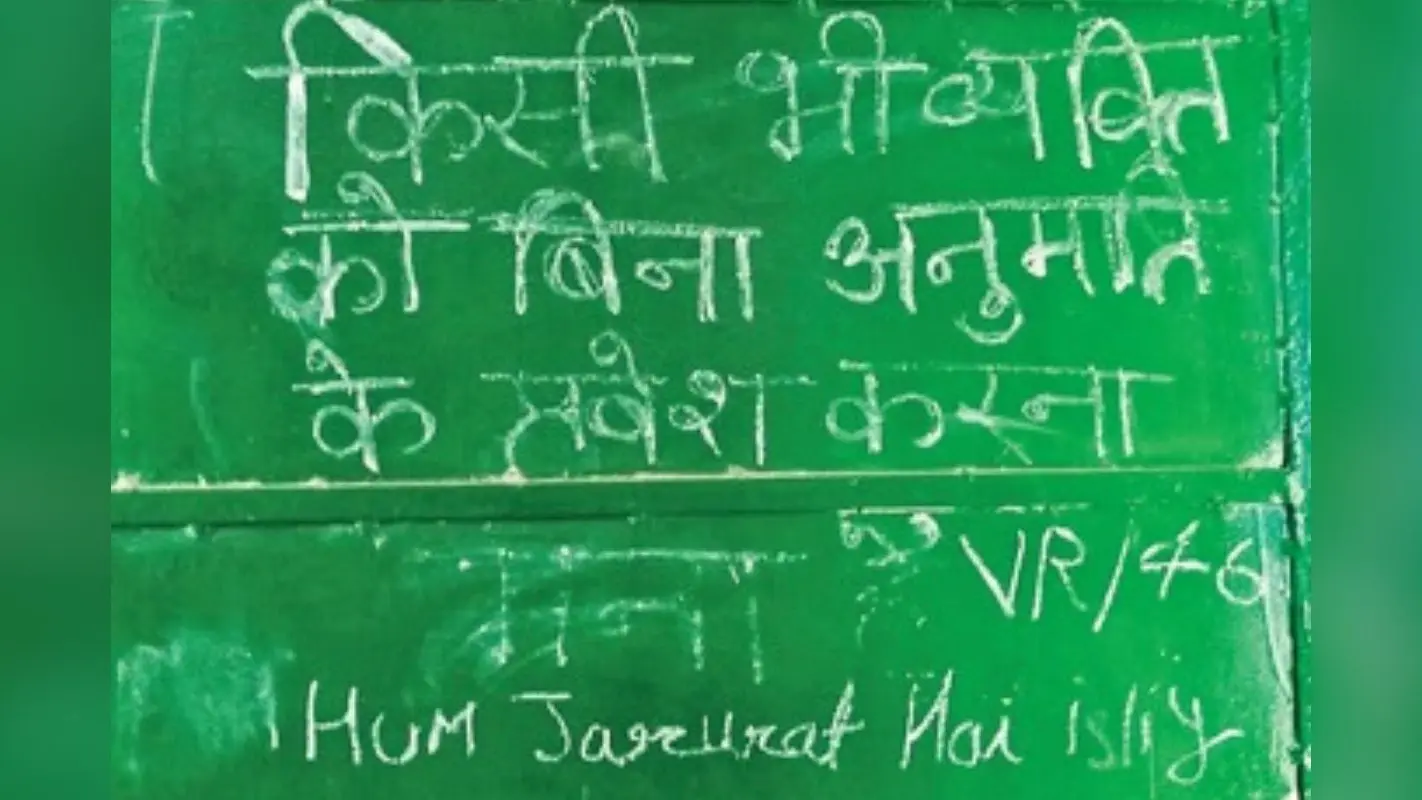 किसी भी व्यक्ति
को बिना अनुमति
के प्रवेश करना
मना है VR/46
HUM Jarrurat Hai